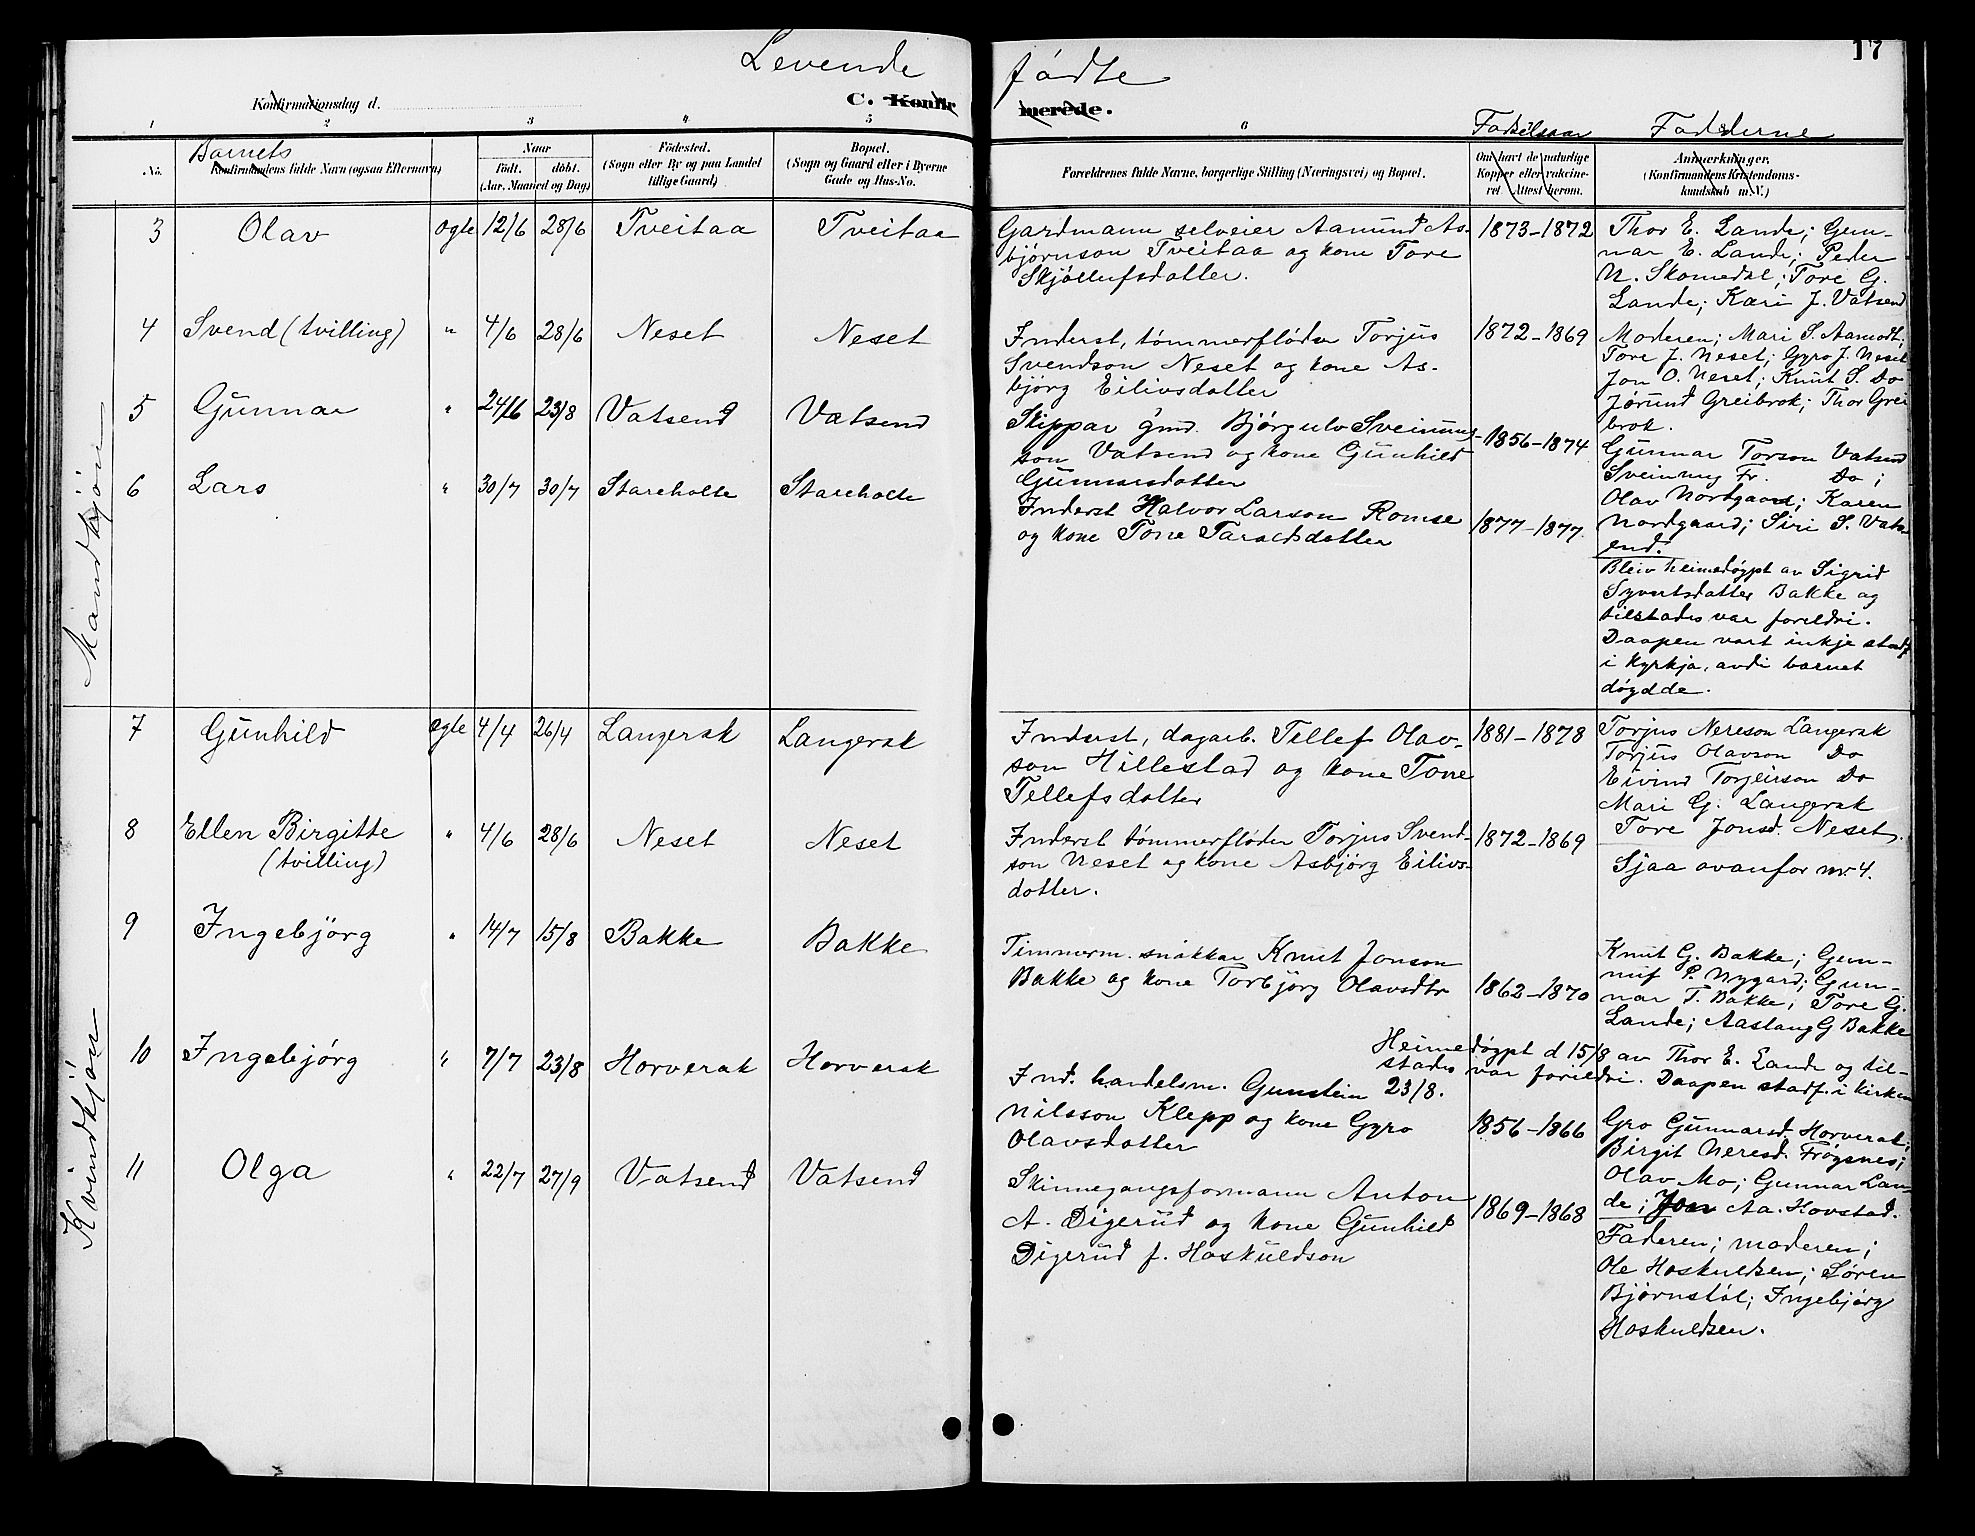 17
Levende fødte
Konfirmationsdag d.
C. Konfirmerede.
1 2 3 4 5 6 Fødselsaar Fadderne
No.
Barnets
Konfirmandens fulde Navn (ogsaa Efternavn)
Naar
Født. døbt.
(Aar. Maaned og Dag)
Fødested.
(Sogn eller By og paa Landet
tillige Gaard)
Bopæl.
(Sogn og Gaard eller i Byerne
Gade og Hus-No.
Forældrenes fulde Navne, borgerlige Stilling (Næringsvei) og Bopæl.
Om havt de naturlige
Kopper eller vakcine-
ret. Attest herom.
Anmerkninger,
(Konfirmandens Kristendoms-
kundskab m. V.)
Mandkjøn
3 Olav ogte 12/6 28/6 Tveitaa Tveitaa
Gardmann selveier Aamund As-
bjørnson Tveitaa og kone Tore
Skjøllufsdatter.
1873-1872
Thor E. Lande; Gun-
nar E. Lande; Peder
N. Skomedal; Tore G.
Lande; Kari J. Vatsend
4 Svend (tvilling) " 4/6 28/6 Neset Neset
Inderst, tømmerfløder Torjus
Svendson Neset og kone As-
bjørg Eilivsdatter
1872-1869
Moderen; Mari S. Aamodt;
Tore J. Neset; Gyro J. Neset
Jon O. Neset; Knut S. Do
Jørund Greibrok; Thor Grei
brok.
5 Gunnar " 24/6 23/8 Vatsend Vatsend
Skippar gmd. Bjørgulv Sveinung-
son Vatsend og kone Gunhild
Gunnarsdatter
1856-1874
Gunnar Torson Vatsend
Sveinung Fr. Do;
Olav Nordgaard; Karen
Nordgaard; Siri S. Vats
end.
6 Lars " 30/7 30/7 Stareholte Stareholte
Inderst Halvor Larson Romse
og kone Tone Taraldsdatter
1877-1877.
Bleiv heimedøypt av Sigrid
Syvertsdatter Bakke og
tilstades var foreldri.
Daapen vart inkje stadf
i kyrkja, avdi barnet
døydde.
Kvindkjøn
7 Gunhild ogte 4/4 26/4 Langerak Langerak
Inderst, dagarb. Tellef Olav-
son Hillestad og kone Tone
Tellefsdatter
1881-1878
Torjus Nereson Langerak
Torjus Olavson Do
Eivind Torjeirson Do
Mari G. Langerak
Tore Jonsd. Neset.
8 Ellen Birgitte " 4/6 28/6 Neset Neset
(tvilling)
Inderst tømmerfløder Torjus Svend-
son Neset og kone Asbjørg Eilivs-
datter.
1872-1869
Sjaa ovanfor nr. 4.
9 Ingebjörg " 14/7 15/8 Bakke Bakke
Timmerm. snikkar Knut Jonson
Bakke og kone Torbjörg Olavsdtr
1862-1870
Knut G. Bakke; Gun-
nuf P. Nygard; Gun-
nar T. Bakke; Tore G.
Lande; Aaslaug G Bakke
10 Ingebjørg " 7/7 23/8 Horverak Horverak
Heimedøypt d 15/8 av Thor E. Lande og til-
stades var foreldri. Daapen stadf. i kirken
23/8.
Ind. handelsm. Gunstein
Nilsson Klepp og kone Gyro
Olavsdatter
1856-1866
Gro Gunnarsd. Horverak;
Birgit Neresd. Frøysnes;
Olav Mo; Gunnar Lan-
de; Jon Aa. Hovstad.
11 Olga " 22/7 27/9 Vatsend Vatsend
Skinnegangsformann Anton
A. Digerud og kone Gunhild
Digerud f. Hoskuldson
1869-1868
Faderen; moderen;
Ole Hoskuldsen; Søren
Bjørnstøl; Ingebjørg
Hoskuldsen.